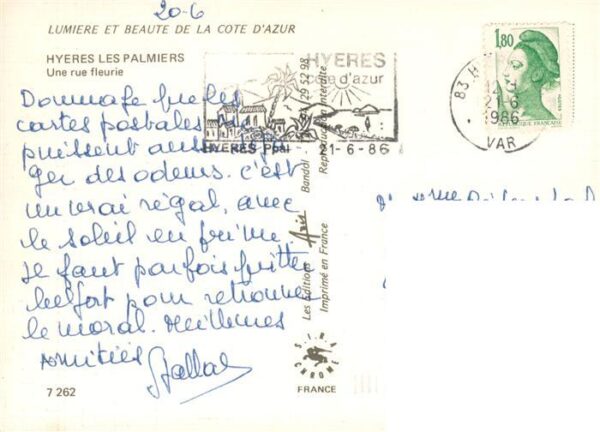 20-6
LUMIERE ET BEAUTE DE LA COTE D'AZUR
HYERES LES PALMIERS
Une rue fleurie
Dommage que les
cartes postales ne
puissent aussi
ger des odeurs. c'est
un vrai régal, avec
le soleil en prime.
Il faut parfois quitter
Belfort pour retrouver
le moral. Meilleures
Amitiés
7 262
HYERES
côte d'azur
HYERES Ppal 21-6-86
Les Editions Aris Bandol 94 29 52 98
Imprimé en France Reproduction interdite
SIRA CHROME
FRANCE
1,80
REPUBLIQUE FRANCAISE
83 H
21-6
1986
VAR